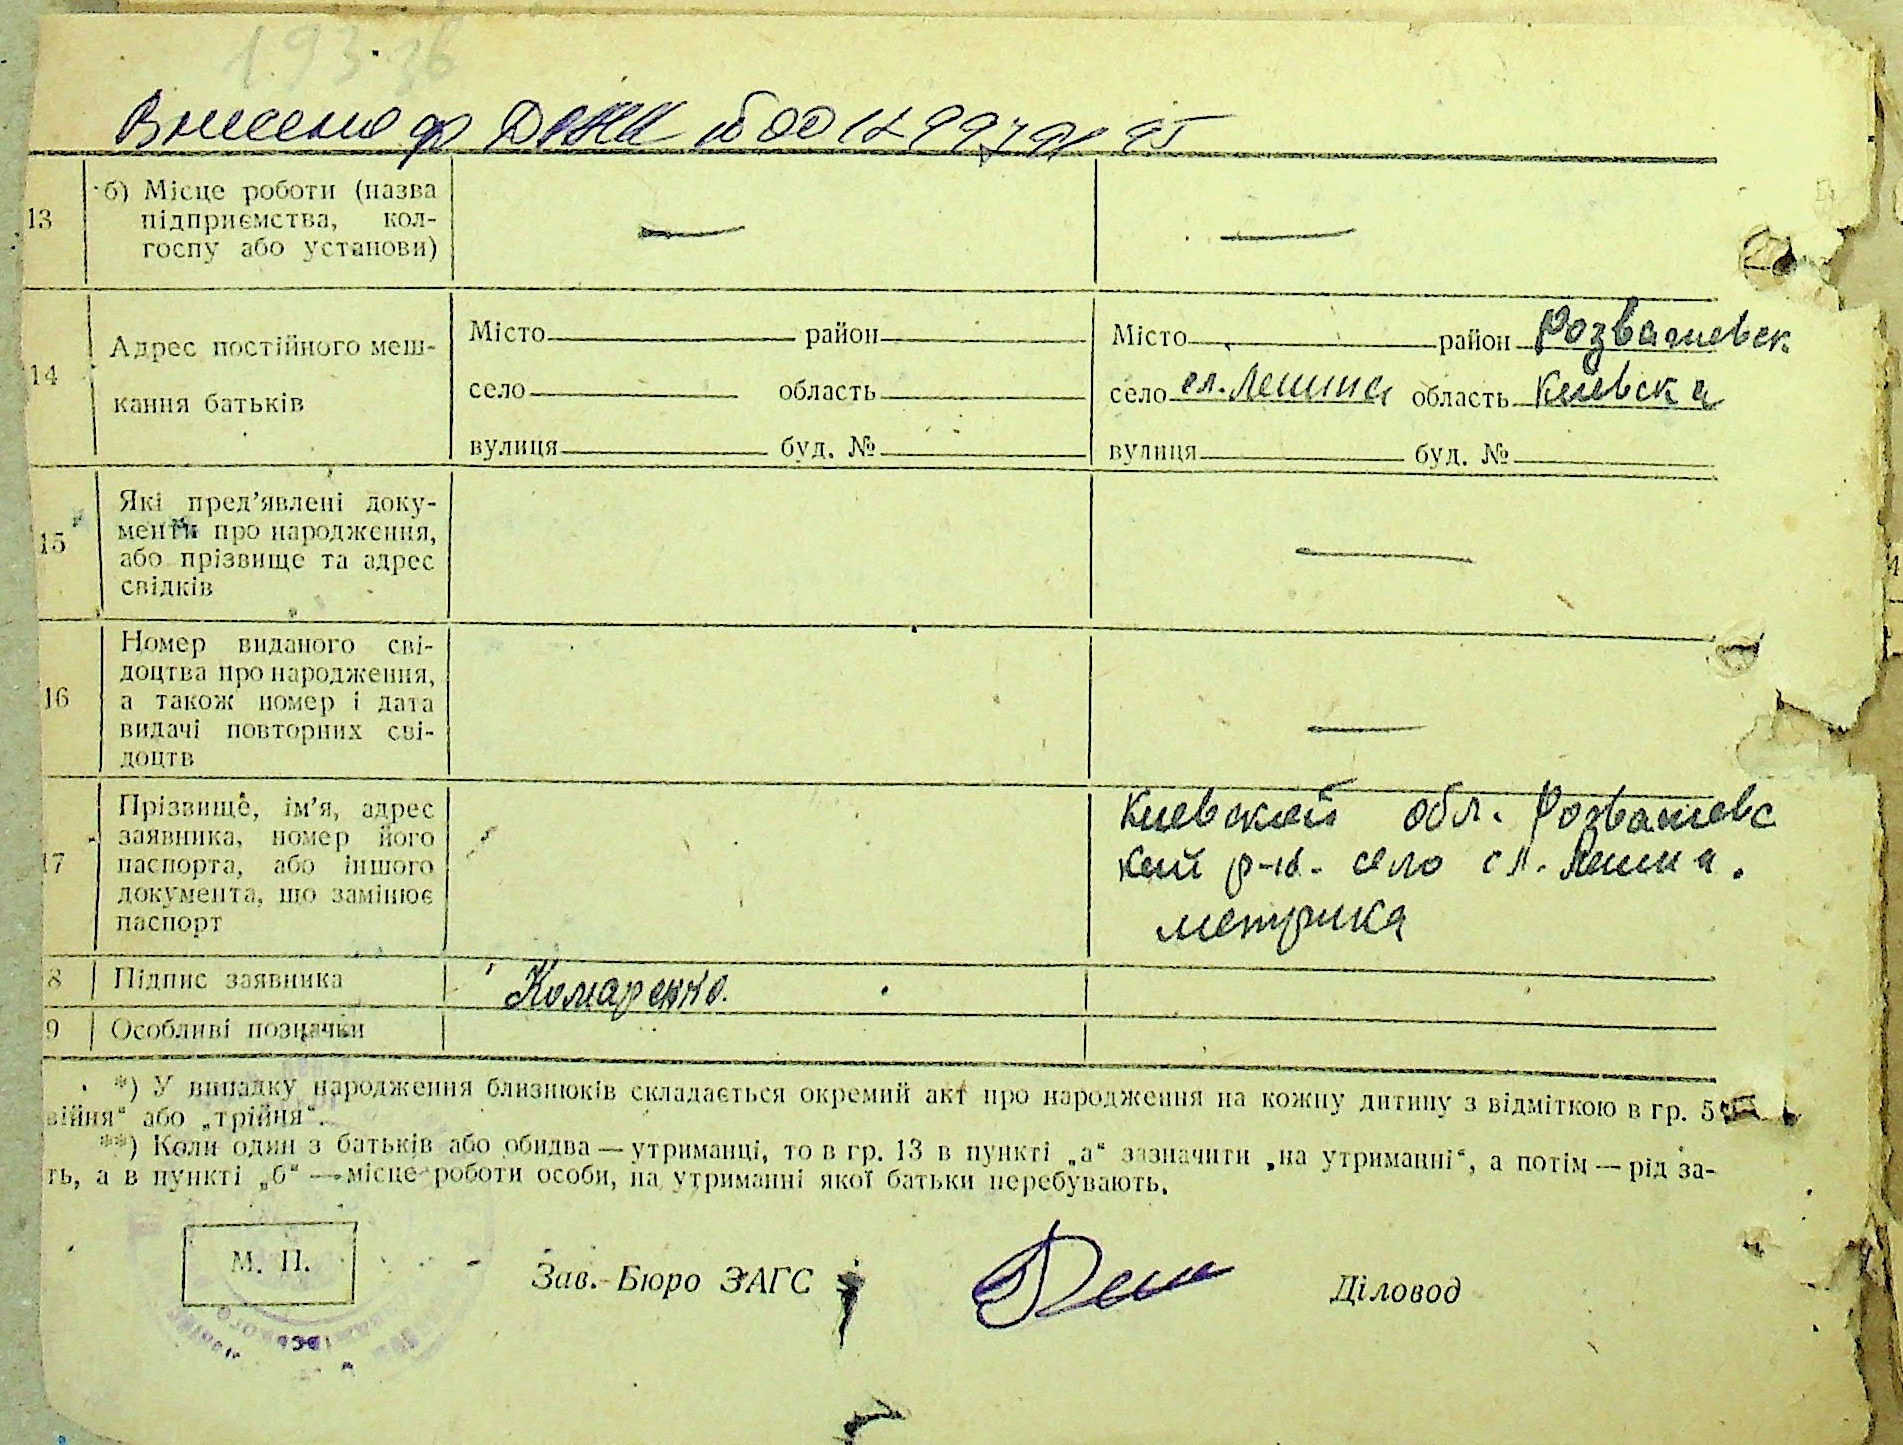 Внесено
13 б) Місце роботи (назва
підприємства, кол-
госпу або установи) — —
14 Адрес постійного меш-
кання батьків
Місто район
село область
вулиця буд. №
Місто район Розважевск
село сл. Лешина область Киевска
вулиця буд. №
15 Які пред'явлені доку-
менти про народження,
або прізвище та адрес
свідків —
16 Номер виданого сві-
доцтва про народження,
а також номер і дата
видачі повторних сві-
доцтв —
17 Прізвище, ім'я, адрес
заявника, номер його
паспорта, або іншого
документа, що замінює
паспорт
Киевской обл. Розважевс
кий р-н. село сл. Лешина.
метрика
8 Підпис заявника Комаренко.
9 Особливі позначки
*) У випадку народження близнюків складається окремий акт про народження на кожну дитину з відміткою в гр. 5
війня“ або „трійня“.
**) Коли один з батьків або обидва — утриманці, то в гр. 13 в пункті „а“ зазначити „на утриманні“, а потім — рід за-
ть, а в пункті „б“ — місце роботи особи, на утриманні якої батьки перебувають.
М. П. Зав. Бюро ЗАГС Діловод